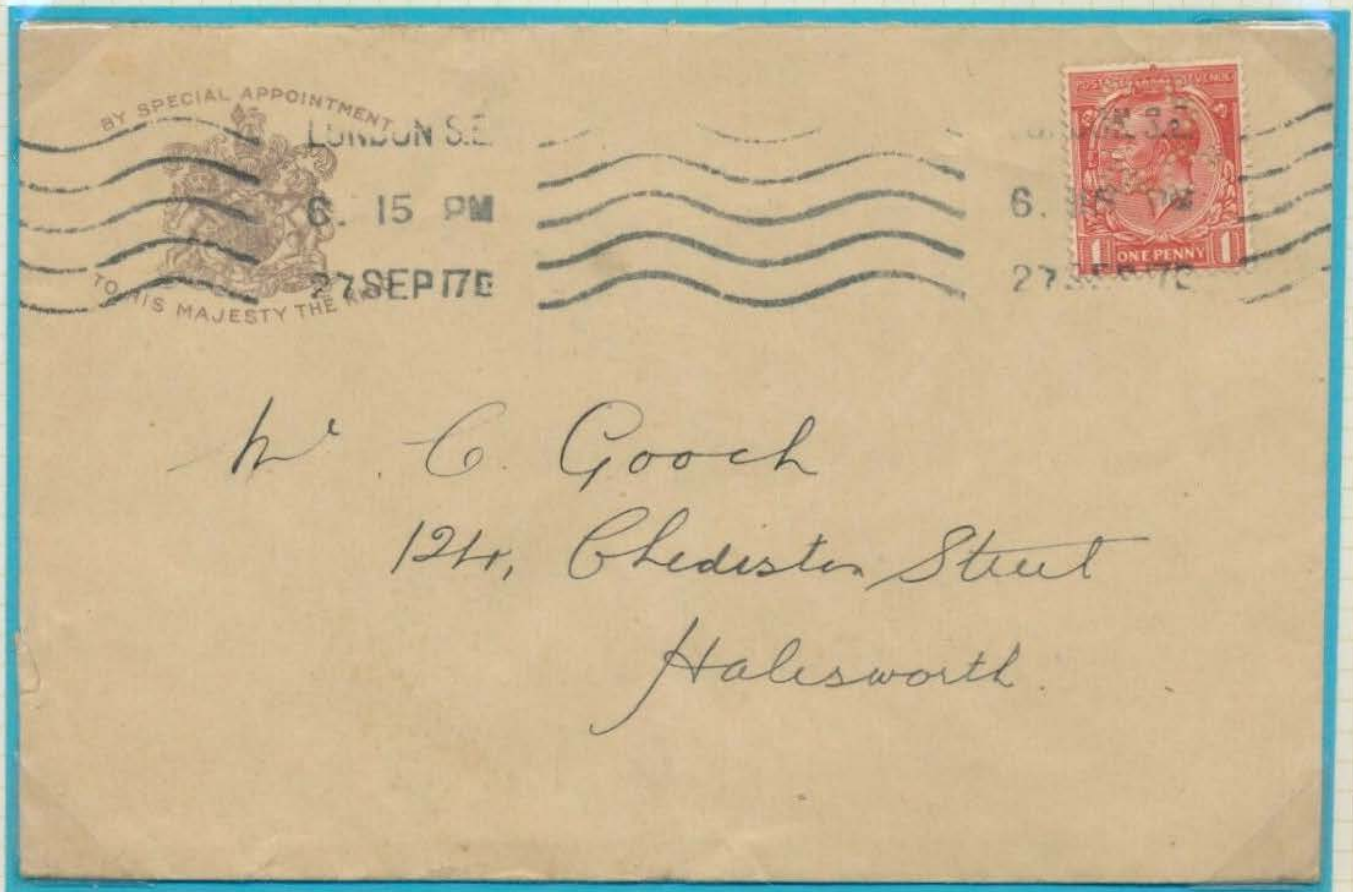 BY SPECIAL APPOINTMENT
TO HIS MAJESTY THE
LONDON S.E.
6. 15 PM
27 SEP 17 E
6. PM
27 SEP 17 E
POSTAGE REVENUE
1 ONE PENNY 1
Mr C. Gooch
124, Chediston Street
Halesworth.